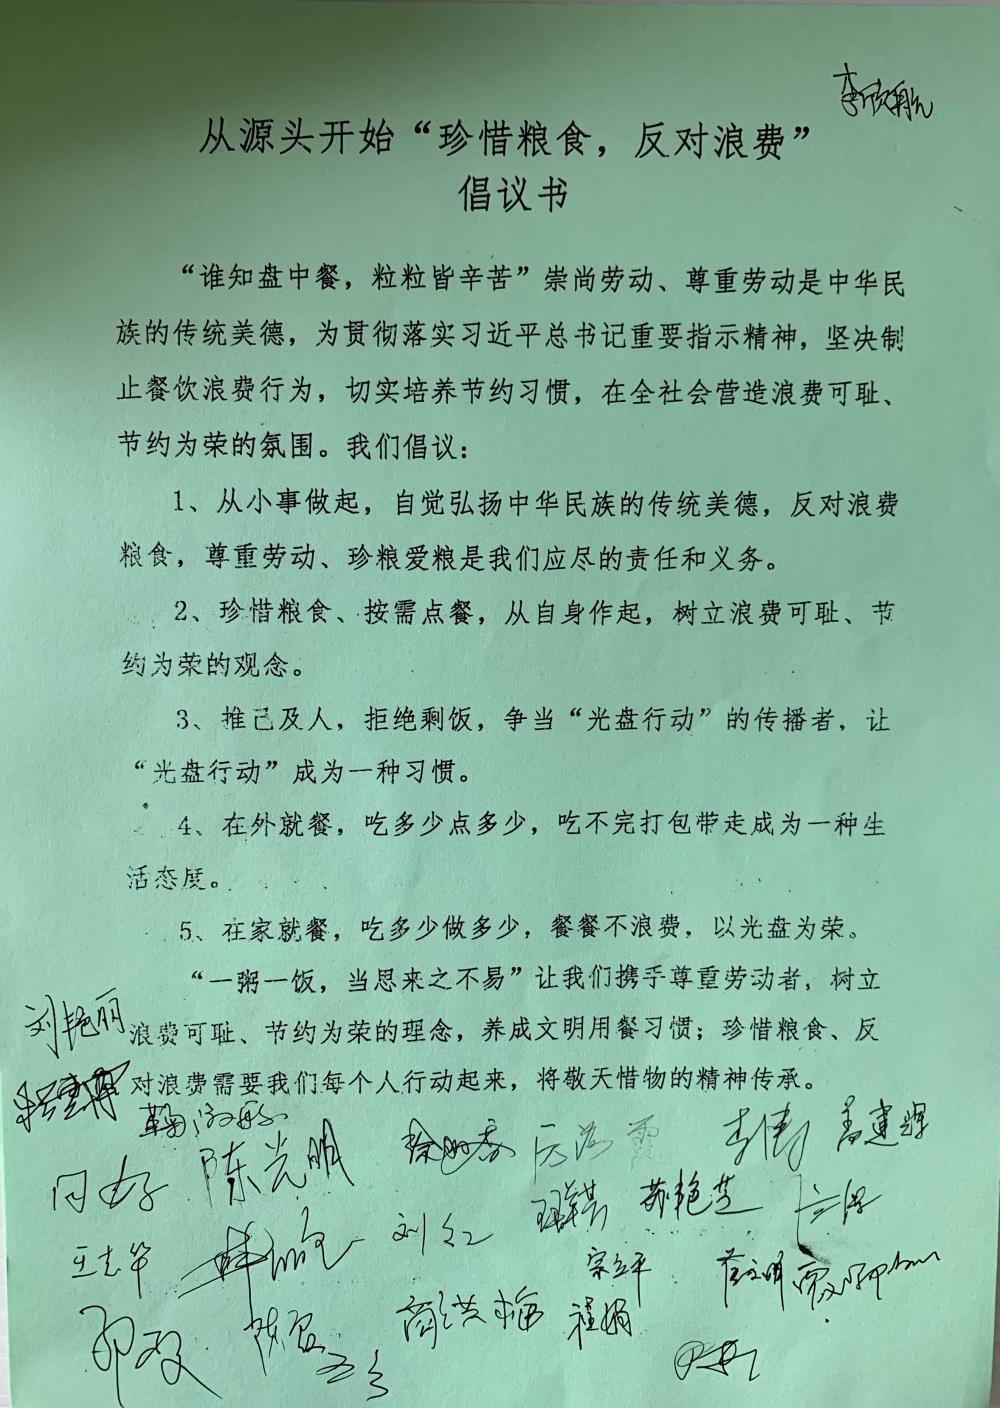 从源头开始“珍惜粮食，反对浪费”
倡议书
“谁知盘中餐，粒粒皆辛苦”崇尚劳动、尊重劳动是中华民
族的传统美德，为贯彻落实习近平总书记重要指示精神，坚决制
止餐饮浪费行为，切实培养节约习惯，在全社会营造浪费可耻、
节约为荣的氛围。我们倡议：
1、从小事做起，自觉弘扬中华民族的传统美德，反对浪费
粮食，尊重劳动、珍粮爱粮是我们应尽的责任和义务。
2、珍惜粮食、按需点餐，从自身作起，树立浪费可耻、节
约为荣的观念。
3、推己及人，拒绝剩饭，争当“光盘行动”的传播者，让
“光盘行动”成为一种习惯。
4、在外就餐，吃多少点多少，吃不完打包带走成为一种生
活态度。
5、在家就餐，吃多少做多少，餐餐不浪费，以光盘为荣。
“一粥一饭，当思来之不易”让我们携手尊重劳动者，树立
浪费可耻、节约为荣的理念，养成文明用餐习惯；珍惜粮食、反
对浪费需要我们每个人行动起来，将敬天惜物的精神传承。
刘艳丽
陈光明
刘红
苏艳芝
王志华
宗立平